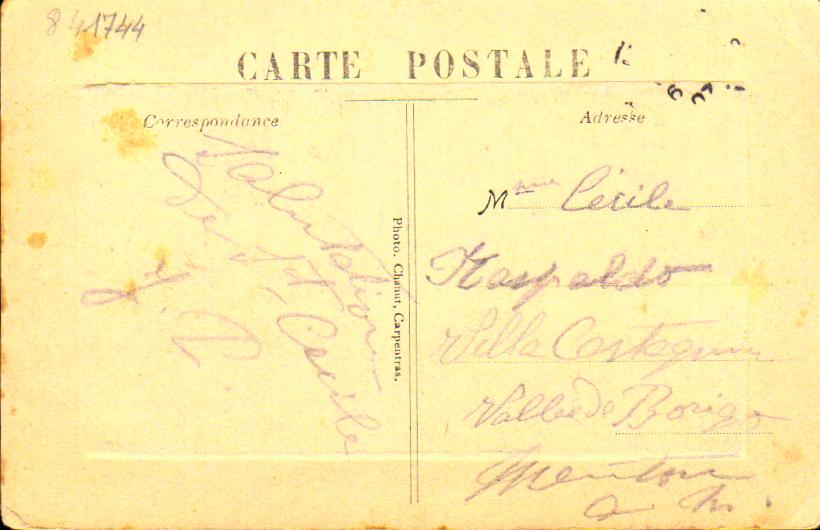 841744
CARTE POSTALE
Correspondance
Adresse
Salutation
de St. Cecile
Photo. Chanut, Carpentras.
Mme Cécile
Raspaldo
Villa
Vallée de Borigo
Menton
a. m.